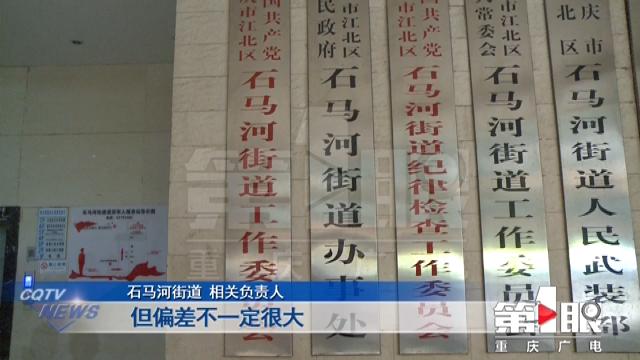 国共产党
市江北区
石马河街道工作委员会
民政府
市江北区
石马河街道办事处
国共产党
市江北区
石马河街道纪律检查工作委员会
大常委会
市江北区
石马河街道工作委员会
庆市
北区
石马河街道人民武装部
第1眼
重庆广电
CQTV
NEWS
石马河街道 相关负责人
但偏差不一定很大
第1眼
重庆广电